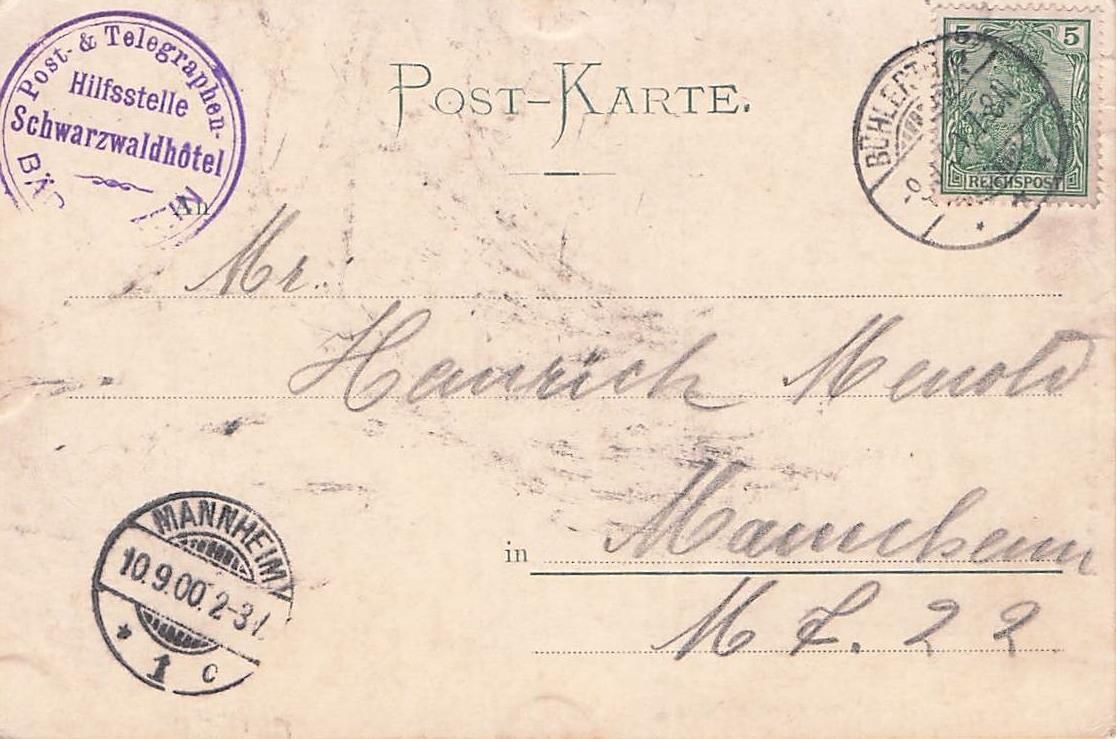 Post- & Telegraphen-
Hilfsstelle
Schwarzwaldhôtel
POST-KARTE.
5 5
REICHSPOST
BÜHLERT
An
Mr.
Heinrich Menold
in Mannheim
M 7. 22
MANNHEIM
10.9.00. 2-3 N.
* 1 c